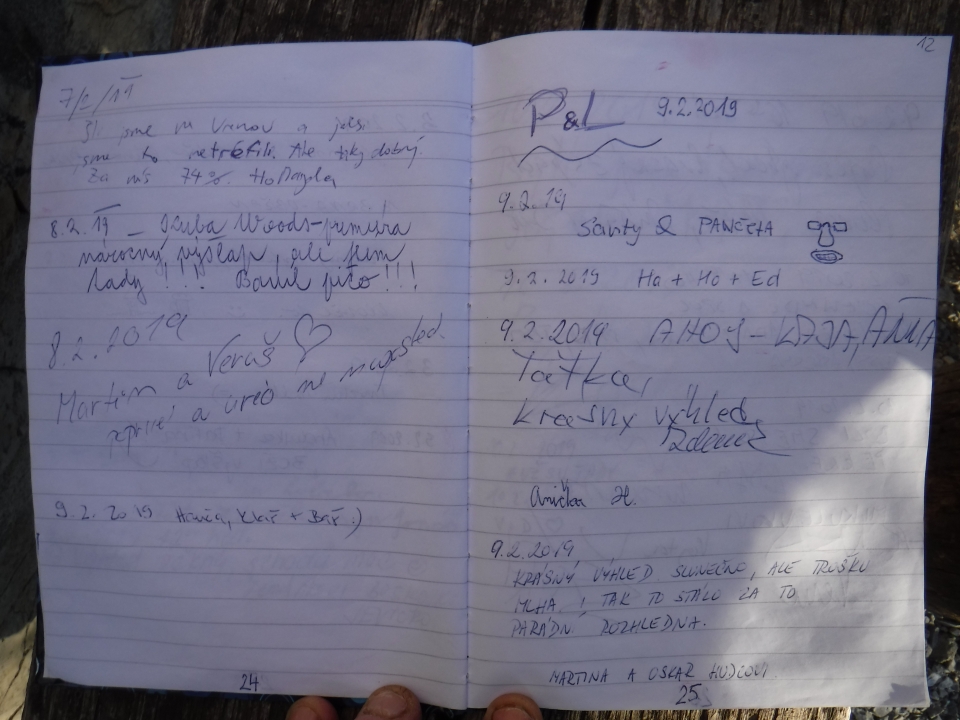 7/2/19
Šli jsme na Vranov a jaksi
jsme to netrefili. Ale taky dobrý.
Za nás 74%.
8.2.19 - Kuba Woods-premiéra
náročný výšlap, ale jsem
tady !!! Bacil pífo!!!
8.2.2019
Martin a Veruš
poprvé a určo ne naposled.
9.2.2019 Hanča, + Bář :)
24
12
P&L 9.2.2019
9.2.19
Santy & PANČCHA
9.2.2019 Ha + Ho + Ed
9.2.2019 AHOJ - KAJA, AŇIA
Taťka,
krásný výhled
Zdenek
Anička H.
9.2.2019
KRÁSNÝ VÝHLED. SLUNEČNO, ALE TROŠKU
MLHA. I TAK TO STÁLO ZA TO
PARÁDNÍ ROZHLEDNA.
MARTINA A OSKAR HUDCOVI
25